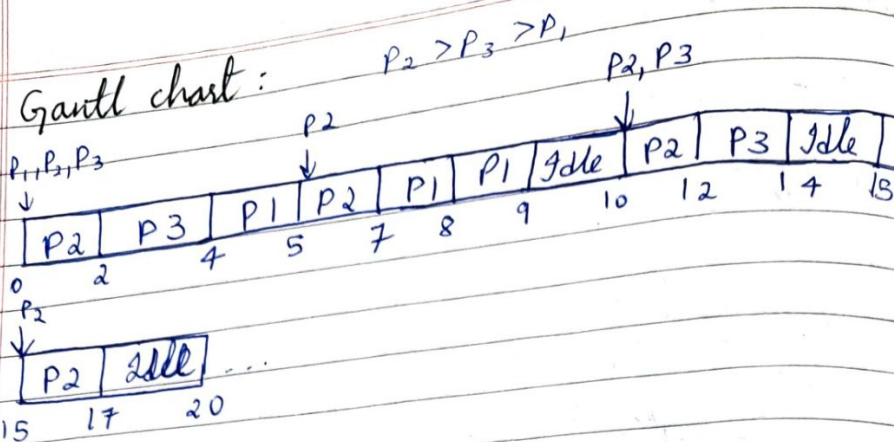 P2 > P3 > P1
Gantt chart :
P1, P2, P3
P2
P2, P3
P2 P3 P1 P2 P1 P1 Idle P2 P3 Idle
0 2 4 5 7 8 9 10 12 14 15
P2
P2 Idle ...
15 17 20